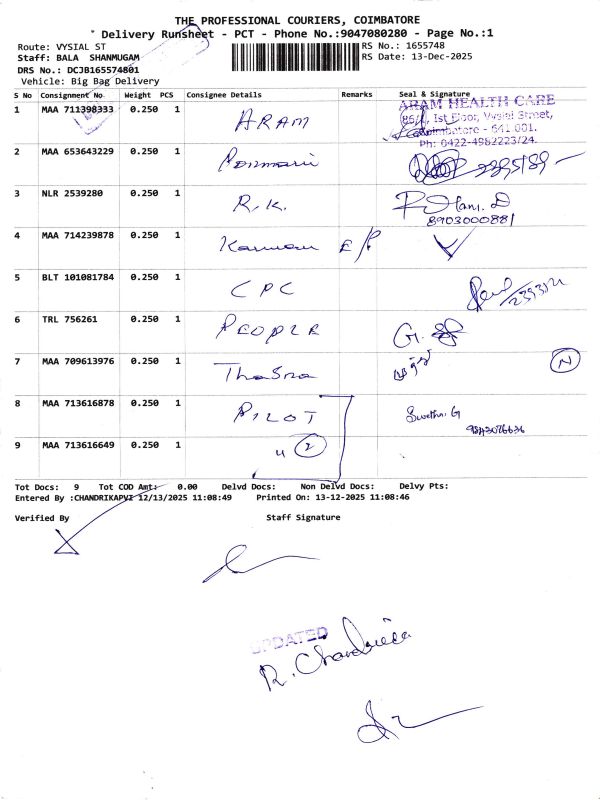 THE PROFESSIONAL COURIERS, COIMBATORE
Delivery Runsheet - PCT - Phone No.:9047080280 - Page No.:1
Route: VYSIAL ST
RS No.: 1655748
Staff: BALA SHANMUGAM
RS Date: 13-Dec-2025
DRS No.: DCJB165574801
Vehicle: Big Bag Delivery
S No Consignment No Weight PCS Consignee Details Remarks Seal & Signature
1 MAA 711398333 0.250 1 ARAM
ARAM HEALTH CARE
Ist Floor, Vysial Street,
Coimbatore - 641 001.
Ph: 0422-4982223/24.
2 MAA 653643229 0.250 1
3 NLR 2539280 0.250 1 R.K.
8903000881
4 MAA 714239878 0.250 1
5 BLT 101081784 0.250 1 CPC
6 TRL 756261 0.250 1 PEOPLE
7 MAA 709613976 0.250 1 N
8 MAA 713616878 0.250 1 PILOT Swetha. G
9 MAA 713616649 0.250 1 " 2
Tot Docs: 9 Tot COD Amt: 0.00 Delvd Docs: Non Delvd Docs: Delvy Pts:
Entered By :CHANDRIKAPVI 12/13/2025 11:08:49 Printed On: 13-12-2025 11:08:46
Verified By Staff Signature
UPDATED
R. Chandrica